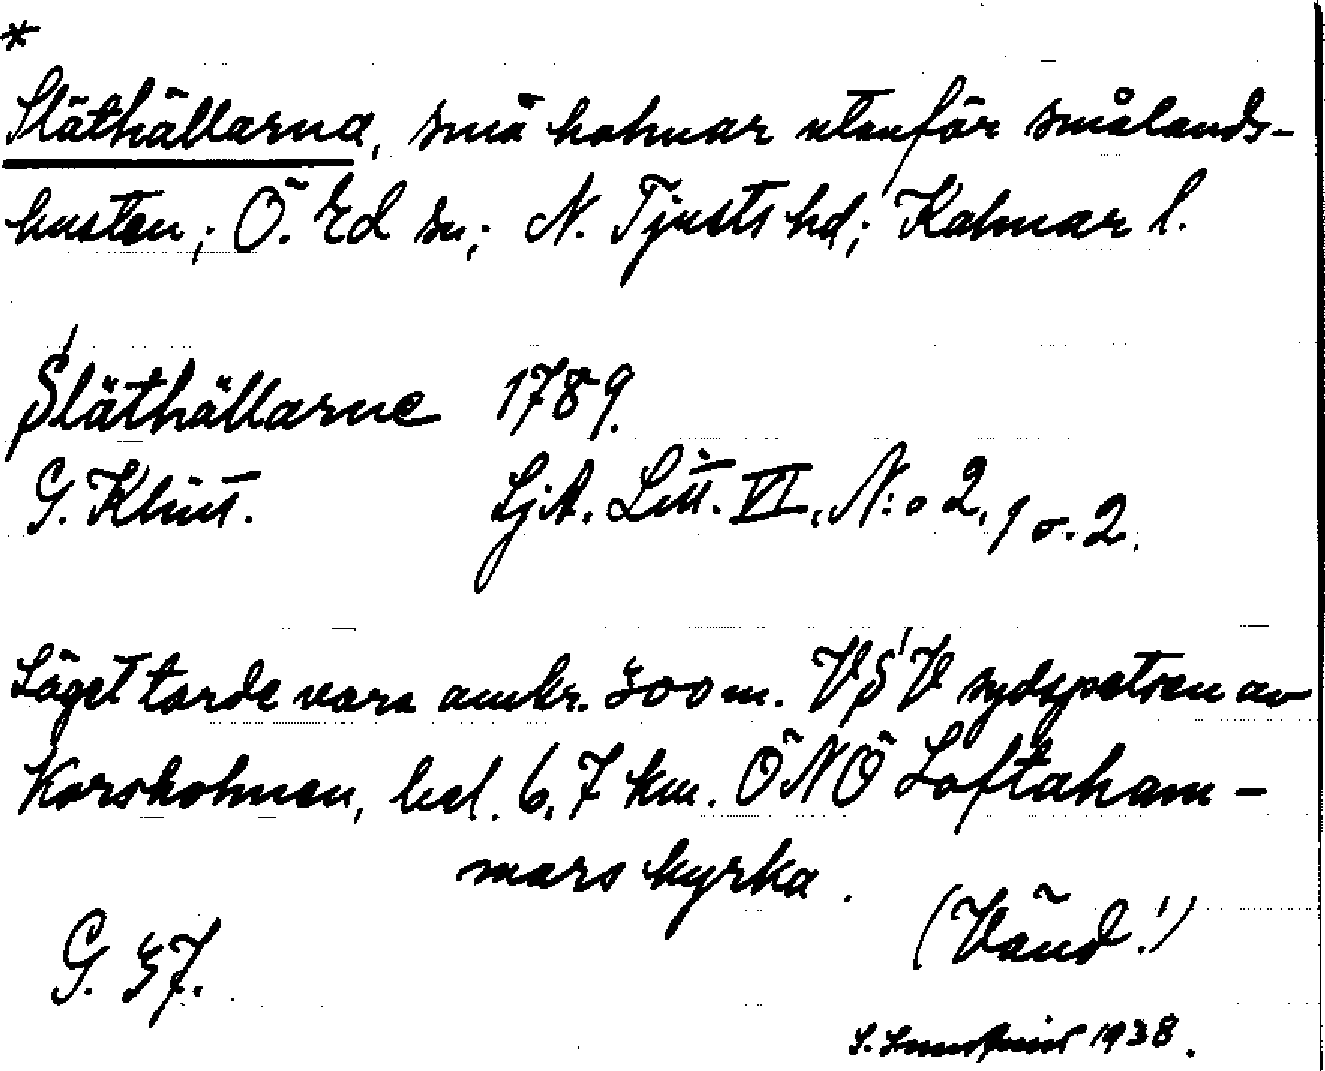 *
Släthällarna, små holmar utanför smålands-
kusten; Ö. Ed sn; N. Tjusts hd; Kalmar l.
Släthällarne 1789.
G. Klint. Sjk. Litt. VI, N:o 2, 1 o. 2.
Läget torde vara omkr. 300 m. VSV sydspetsen av
Korsholmen, bel. 6,7 km. ÖNÖ Loftaham-
mars kyrka.
(Vänd!)
G. 37.
S. 1938.